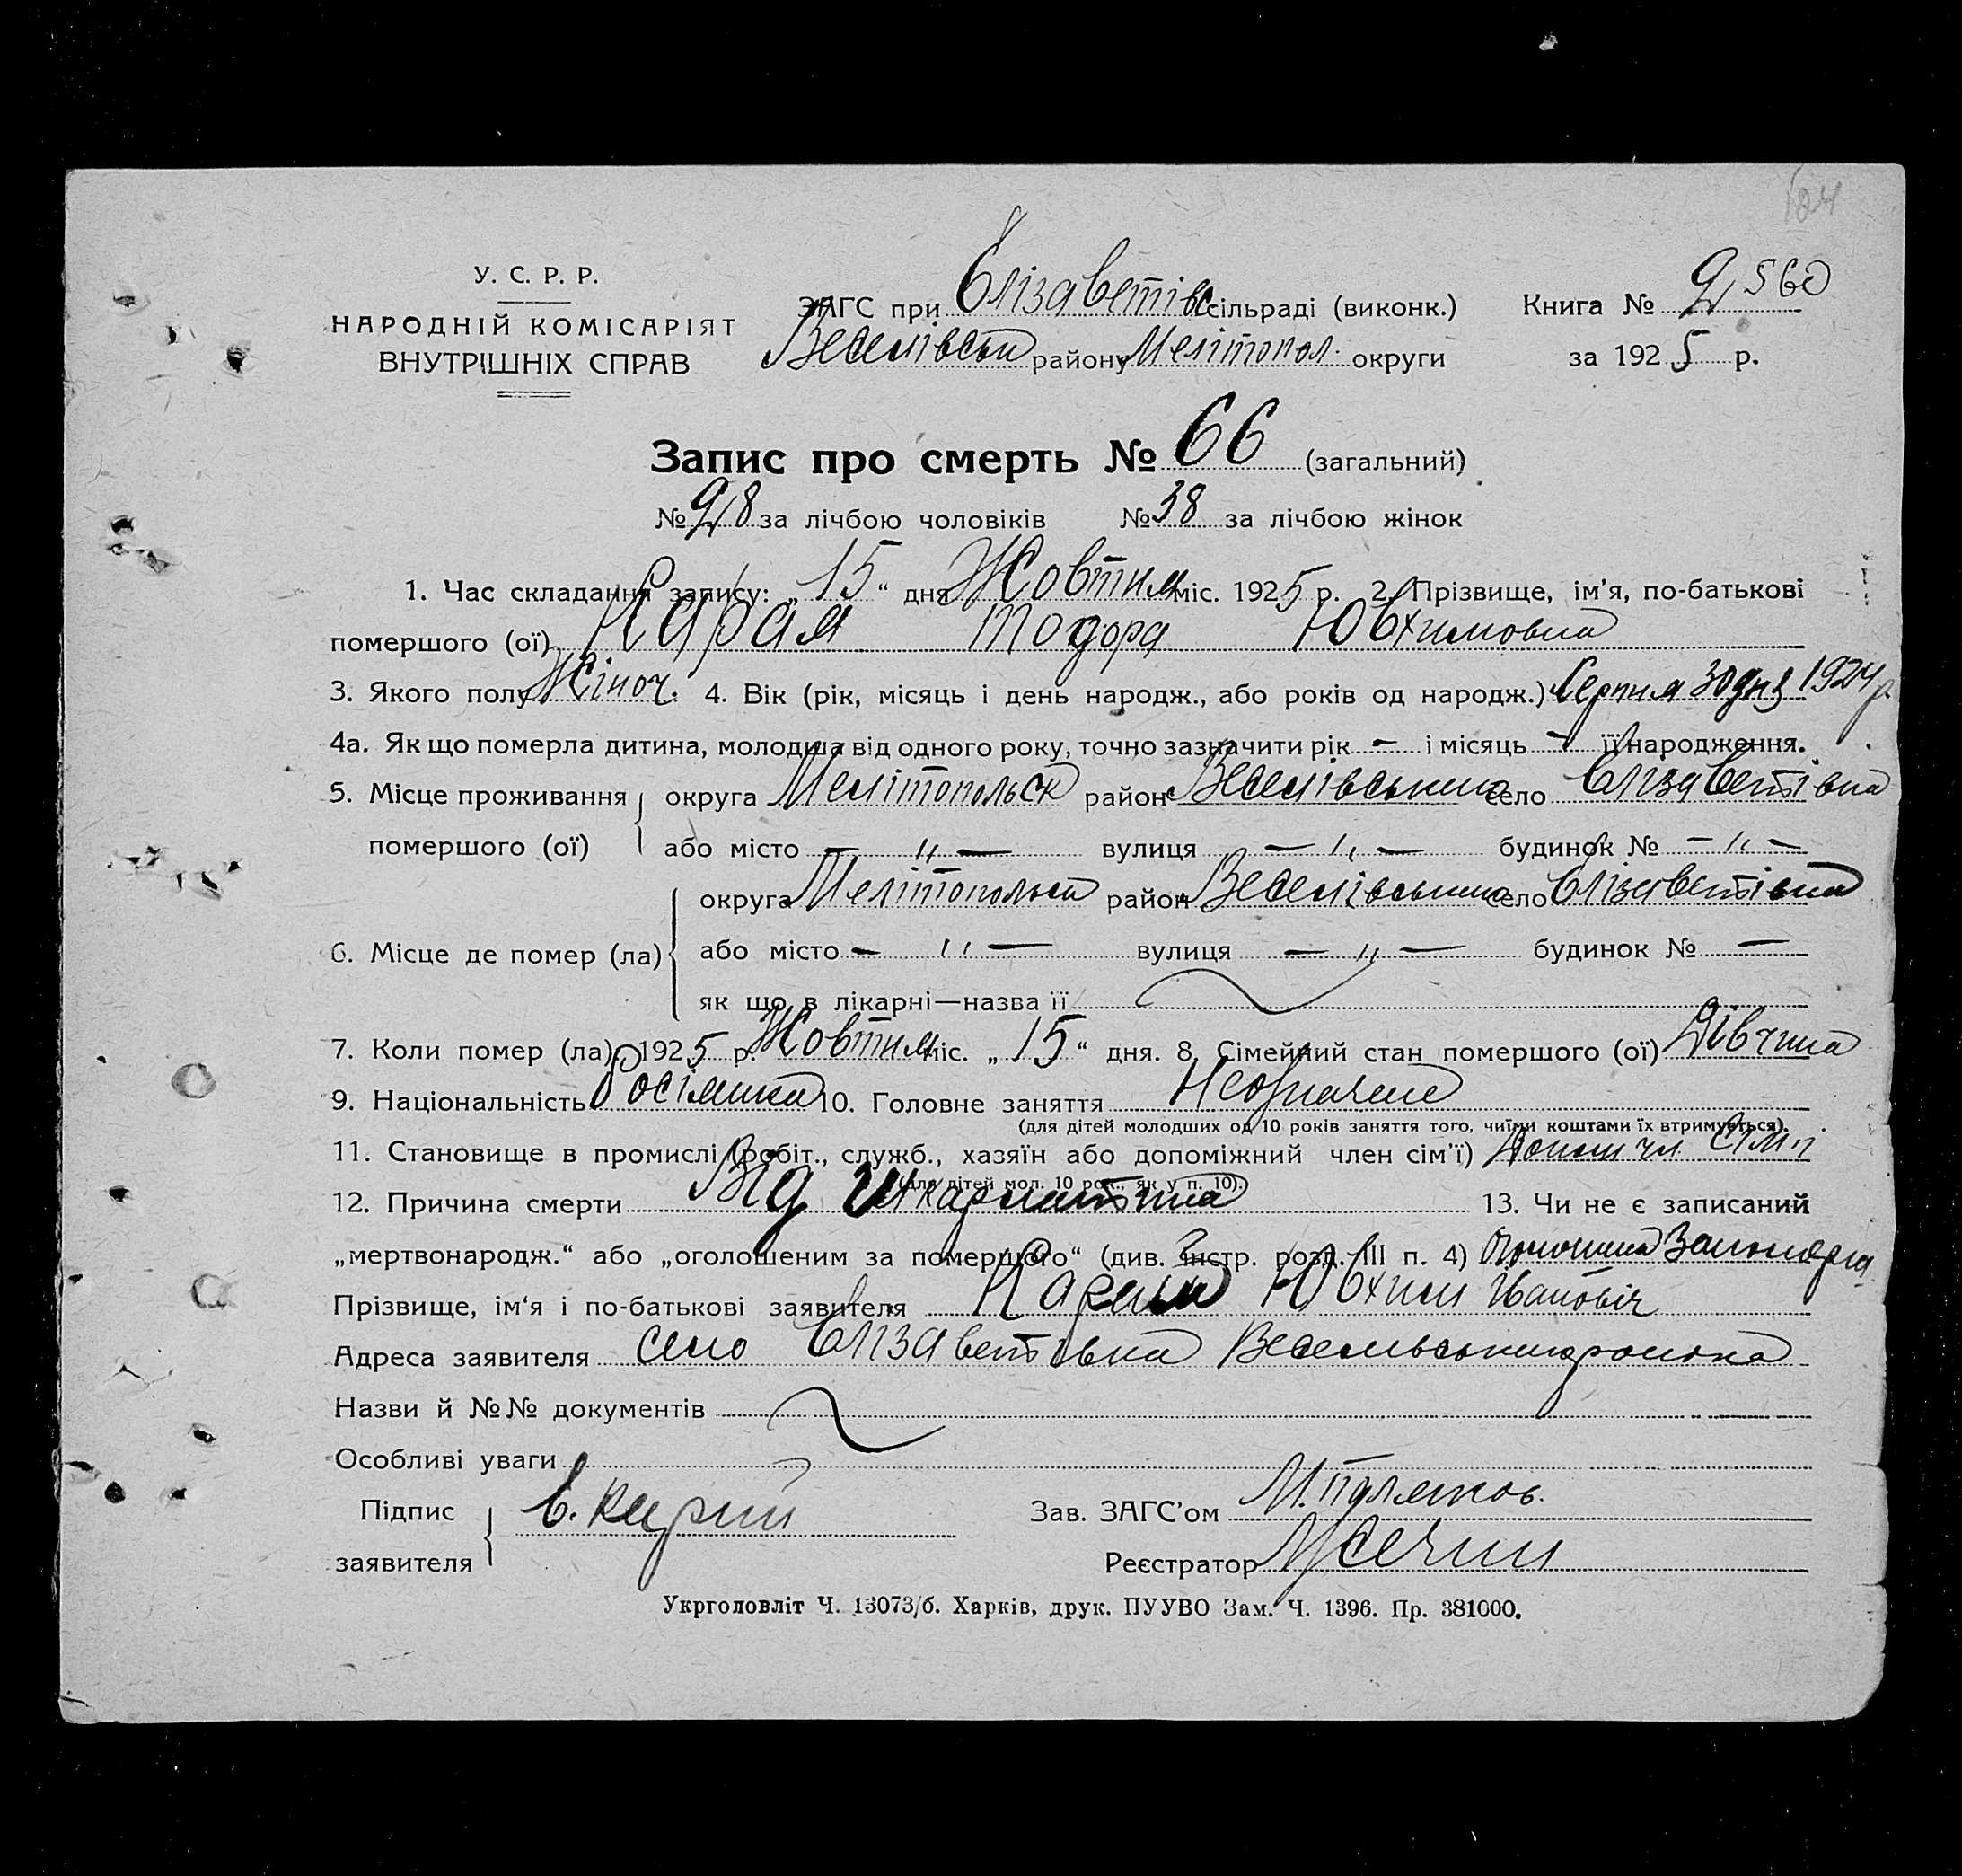 У. С. Р. Р.
НАРОДНІЙ КОМІСАРІЯТ
ВНУТРІШНІХ СПРАВ
ЗАГС при Єлізаветівс сільраді (виконк.)
Веселівськ району Мелітопол. округи
Книга № 2 560
за 1925 р.
Запис про смерть № 66 (загальний)
№ 28 за лічбою чоловіків № 38 за лічбою жінок
1. Час складання запису: „15“ дня Жовтня міс. 1925 р. 2. Прізвище, ім’я, по-батькові
помершого (ої) Карая Тодора Ювхимовна
3. Якого полу Жіноч. 4. Вік (рік, місяць і день народж., або років од народж.) Серпня 30 дня 1924 р
4а. Як що померла дитина, молодша від одного року, точно зазначити рік — і місяць — її народження.
5. Місце проживання помершого (ої) округа Мелітопольск район Веселівський село Єлізаветівка
або місто — „ — вулиця — „ — будинок № — „ —
6. Місце де помер (ла) округа Мелітопольськ район Веселівський село Єлізаветівка
або місто — „ — вулиця — „ — будинок № —
як що в лікарні—назва її
7. Коли помер (ла) 1925 р. Жовтня міс. „15“ дня. 8. Сімейний стан помершого (ої) Дівчина
9. Національність Росіянка 10. Головне заняття
(для дітей молодших од 10 років заняття того, чиїми коштами їх втримується).
11. Становище в промислі (робіт., служб., хазяїн або допоміжний член сім’ї) Допом чл сім’ї
(для дітей мол. 10 рок., як у п. 10).
12. Причина смерти Від Шкарлатина 13. Чи не є записаний
„мертвонародж.“ або „оголошеним за помершого“ (див. інстр. розд. III п. 4)
Прізвище, ім‘я і по-батькові заявителя Ювхим Іванович
Адреса заявителя село Єлізаветівка Веселівського району
Назви й №№ документів
Особливі уваги
Підпис заявителя
Зав. ЗАГС’ом М. Поляков.
Реєстратор
Укрголовліт Ч. 13073/б. Харків, друк. ПУУВО Зам. Ч. 1396. Пр. 381000.